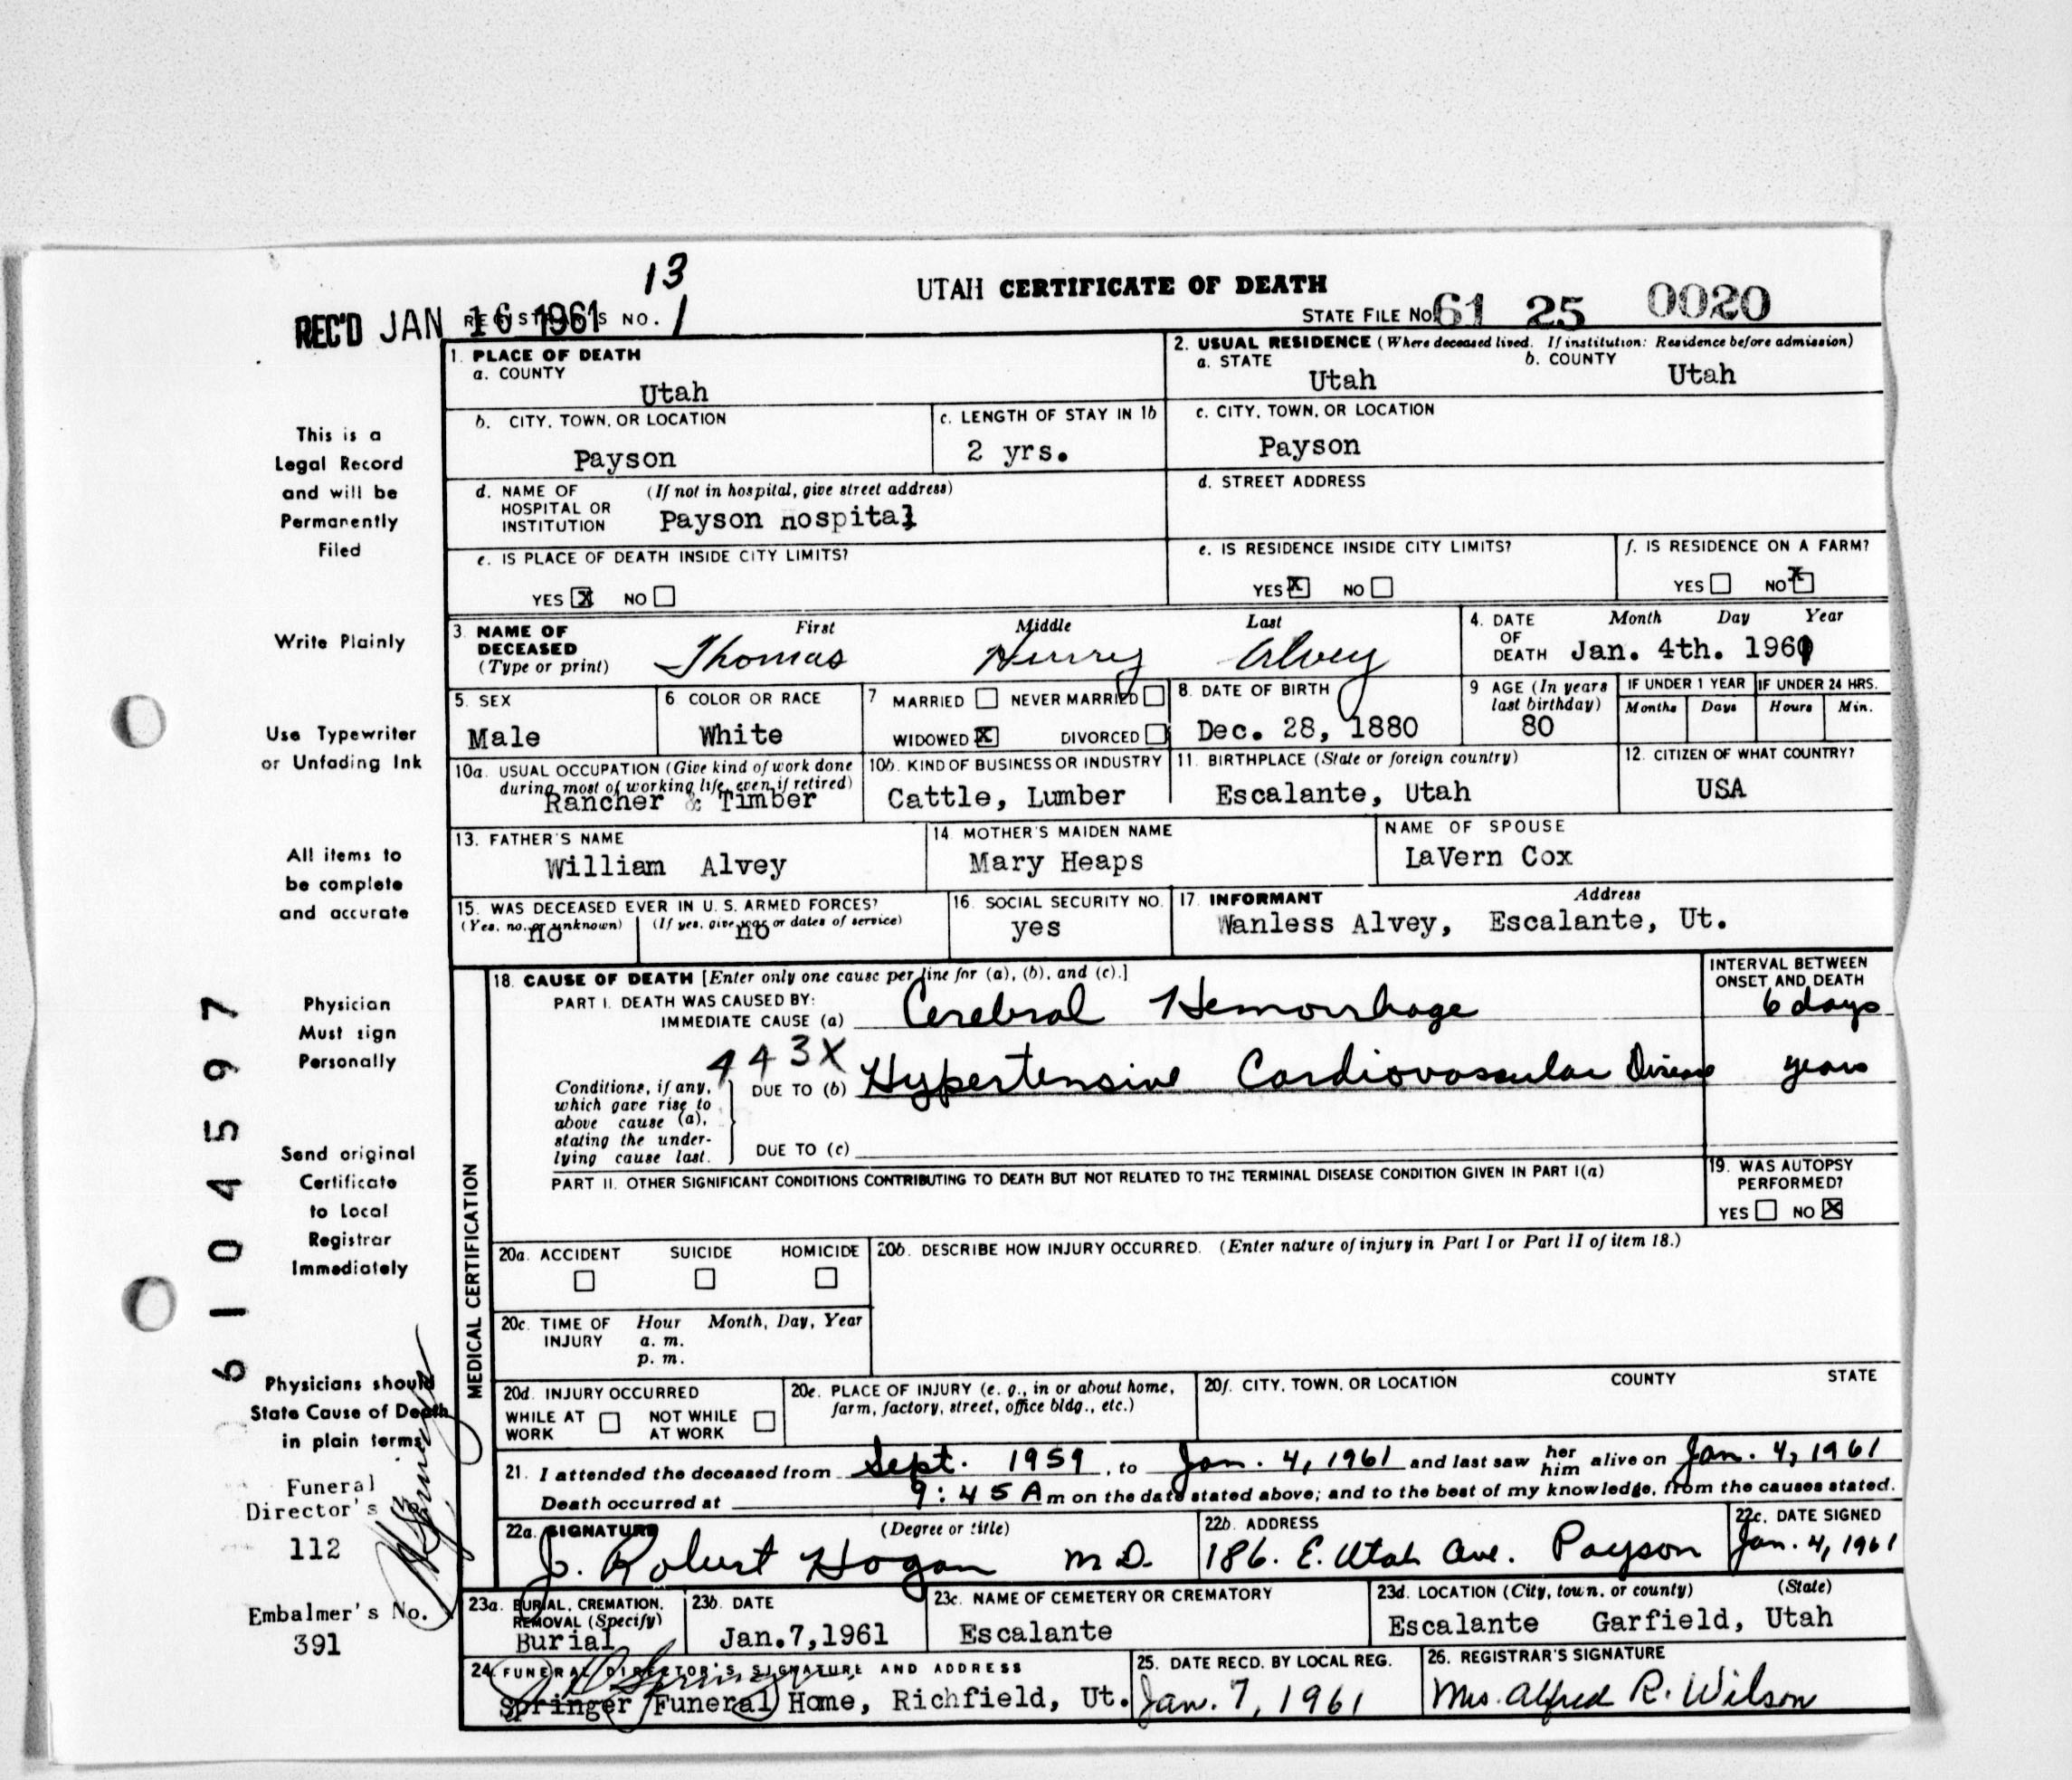 13
UTAH CERTIFICATE OF DEATH
REC'D JAN 16 1961 REGISTRAR'S NO. 1
STATE FILE NO. 61 25 0020
1. PLACE OF DEATH
a. COUNTY
Utah
2. USUAL RESIDENCE (Where deceased lived. If institution: Residence before admission)
a. STATE
Utah
b. COUNTY
Utah
b. CITY, TOWN, OR LOCATION
Payson
c. LENGTH OF STAY IN 1b
2 yrs.
c. CITY, TOWN, OR LOCATION
Payson
d. NAME OF HOSPITAL OR INSTITUTION
(If not in hospital, give street address)
Payson Hospital
d. STREET ADDRESS
e. IS PLACE OF DEATH INSIDE CITY LIMITS?
YES X NO
e. IS RESIDENCE INSIDE CITY LIMITS?
YES X NO
f. IS RESIDENCE ON A FARM?
YES NO X
3. NAME OF DECEASED
(Type or print)
First Middle Last
Thomas Henry Alvey
4. DATE OF DEATH
Month Day Year
Jan. 4th. 1961
5. SEX
Male
6 COLOR OR RACE
White
7 MARRIED NEVER MARRIED
WIDOWED X DIVORCED
8. DATE OF BIRTH
Dec. 28, 1880
9 AGE (In years last birthday)
80
IF UNDER 1 YEAR
Months Days
IF UNDER 24 HRS.
Hours Min.
10a. USUAL OCCUPATION (Give kind of work done during most of working life, even if retired)
Rancher & Timber
10b. KIND OF BUSINESS OR INDUSTRY
Cattle, Lumber
11. BIRTHPLACE (State or foreign country)
Escalante, Utah
12. CITIZEN OF WHAT COUNTRY?
USA
13. FATHER'S NAME
William Alvey
14. MOTHER'S MAIDEN NAME
Mary Heaps
NAME OF SPOUSE
LaVern Cox
15. WAS DECEASED EVER IN U. S. ARMED FORCES?
(Yes, no, or unknown)
no
(If yes, give war or dates of service)
no
16. SOCIAL SECURITY NO.
yes
17. INFORMANT Address
Wanless Alvey, Escalante, Ut.
MEDICAL CERTIFICATION
18. CAUSE OF DEATH [Enter only one cause per line for (a), (b), and (c).]
INTERVAL BETWEEN ONSET AND DEATH
PART I. DEATH WAS CAUSED BY:
IMMEDIATE CAUSE (a) Cerebral Hemorrhage
6 days
443X
Conditions, if any, which gave rise to above cause (a), stating the underlying cause last.
DUE TO (b) Hypertensive Cardiovascular Disease
years
DUE TO (c)
PART II. OTHER SIGNIFICANT CONDITIONS CONTRIBUTING TO DEATH BUT NOT RELATED TO THE TERMINAL DISEASE CONDITION GIVEN IN PART I(a)
19. WAS AUTOPSY PERFORMED?
YES NO X
20a. ACCIDENT SUICIDE HOMICIDE
20b. DESCRIBE HOW INJURY OCCURRED. (Enter nature of injury in Part I or Part II of item 18.)
20c. TIME OF INJURY
Hour Month, Day, Year
a. m.
p. m.
20d. INJURY OCCURRED
WHILE AT WORK NOT WHILE AT WORK
20e. PLACE OF INJURY (e. g., in or about home, farm, factory, street, office bldg., etc.)
20f. CITY, TOWN, OR LOCATION COUNTY STATE
21. I attended the deceased from Sept. 1959, to Jan. 4, 1961 and last saw her him alive on Jan. 4, 1961
Death occurred at 9:45 A m on the date stated above; and to the best of my knowledge, from the causes stated.
22a. SIGNATURE (Degree or title)
J. Robert Hogan M.D.
22b. ADDRESS
186. E. Utah Ave. Payson
22c. DATE SIGNED
Jan. 4, 1961
23a. BURIAL, CREMATION, REMOVAL (Specify)
Burial
23b. DATE
Jan.7,1961
23c. NAME OF CEMETERY OR CREMATORY
Escalante
23d. LOCATION (City, town, or county) (State)
Escalante Garfield, Utah
24. FUNERAL DIRECTOR'S SIGNATURE AND ADDRESS
Springer Funeral Home, Richfield, Ut.
25. DATE RECD. BY LOCAL REG.
Jan. 7, 1961
26. REGISTRAR'S SIGNATURE
Mrs. Alfred R. Wilson
This is a
Legal Record
and will be
Permanently
Filed
Write Plainly
Use Typewriter
or Unfading Ink
All items to
be complete
and accurate
Physician
Must sign
Personally
Send original
Certificate
to Local
Registrar
Immediately
Physicians should
State Cause of Death
in plain terms
Funeral
Director's
112
Embalmer's No.
391
6104597